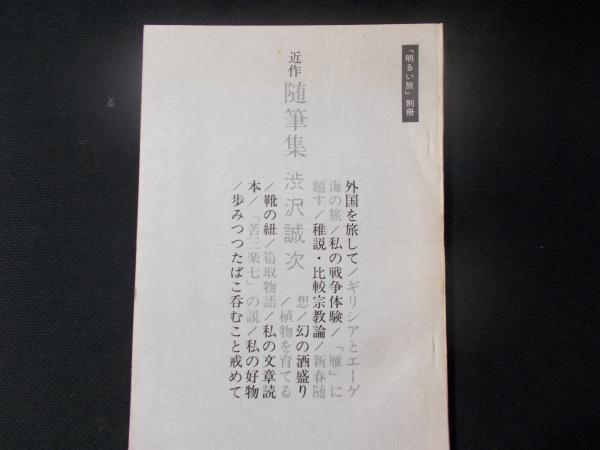 「明るい旅」別冊
近作
随筆集
渋沢誠次
外国を旅して/ギリシアとエーゲ
海の旅/私の戦争体験/「雁」に
題す/稚説・比較宗教論/新春随
想/幻の酒盛り
/植物を育てる
/靴の紐/筍取物語/私の文章読
本/「苦三楽七」の説/私の好物
/歩みつつたばこ呑むこと戒めて